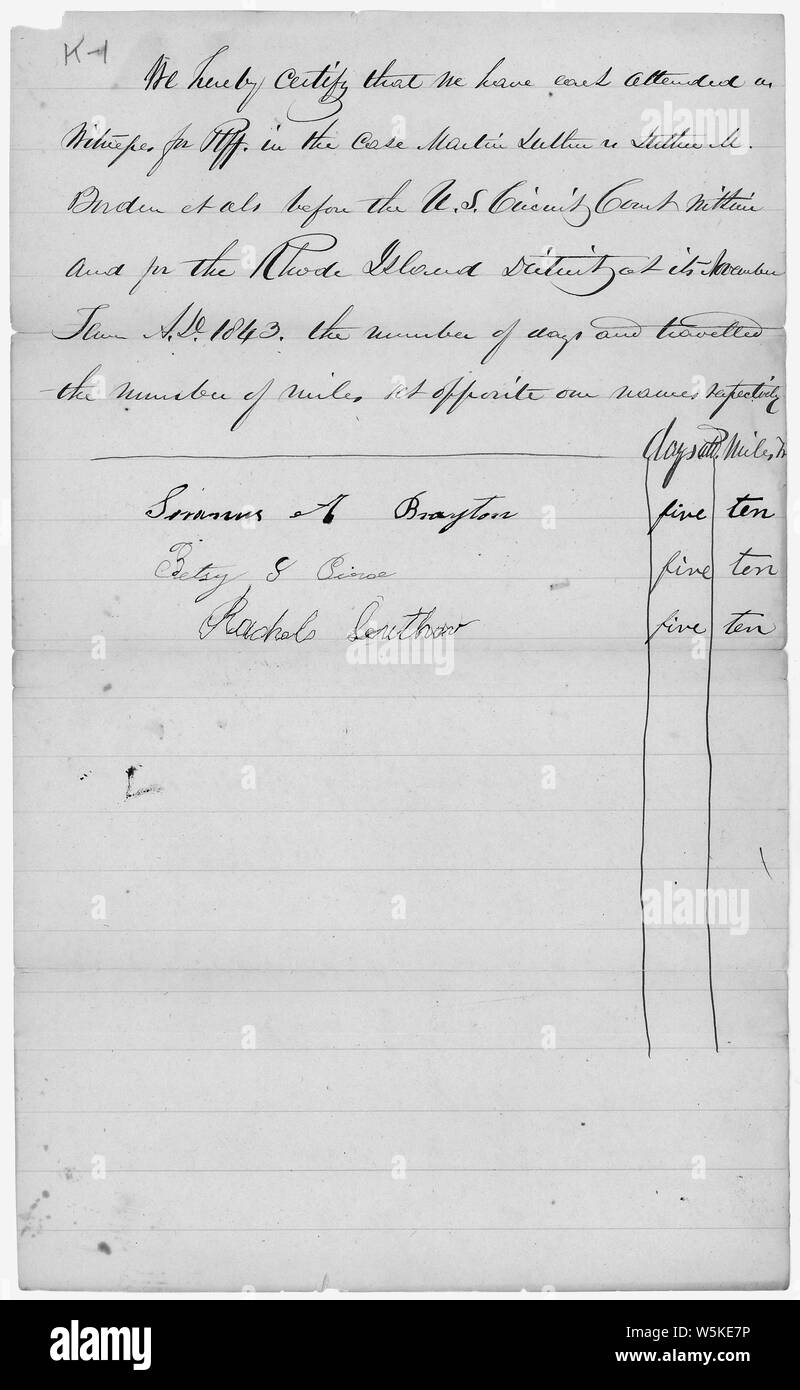 K-1
We hereby certify that we have each attended as
Witnesses for Plff. in the case Martin Luther vs Luther M.
Borden et als before the U.S. Circuit Court within
and for the Rhode Island District at its November
Term A.D. 1843. the number of days and travelled
the number of miles set opposite our names respectively
days att. Miles Tr
A Brayton five ten
Betsy S five ten
Rachel S five ten
alamy
alamy
alamy
Image ID: W5KE7P
www.alamy.com